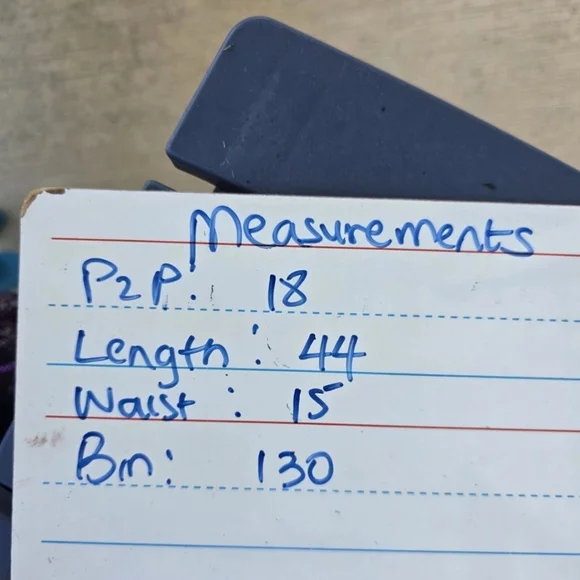 Measurements
P2P: 18
Length: 44
Waist: 15
Bm: 130